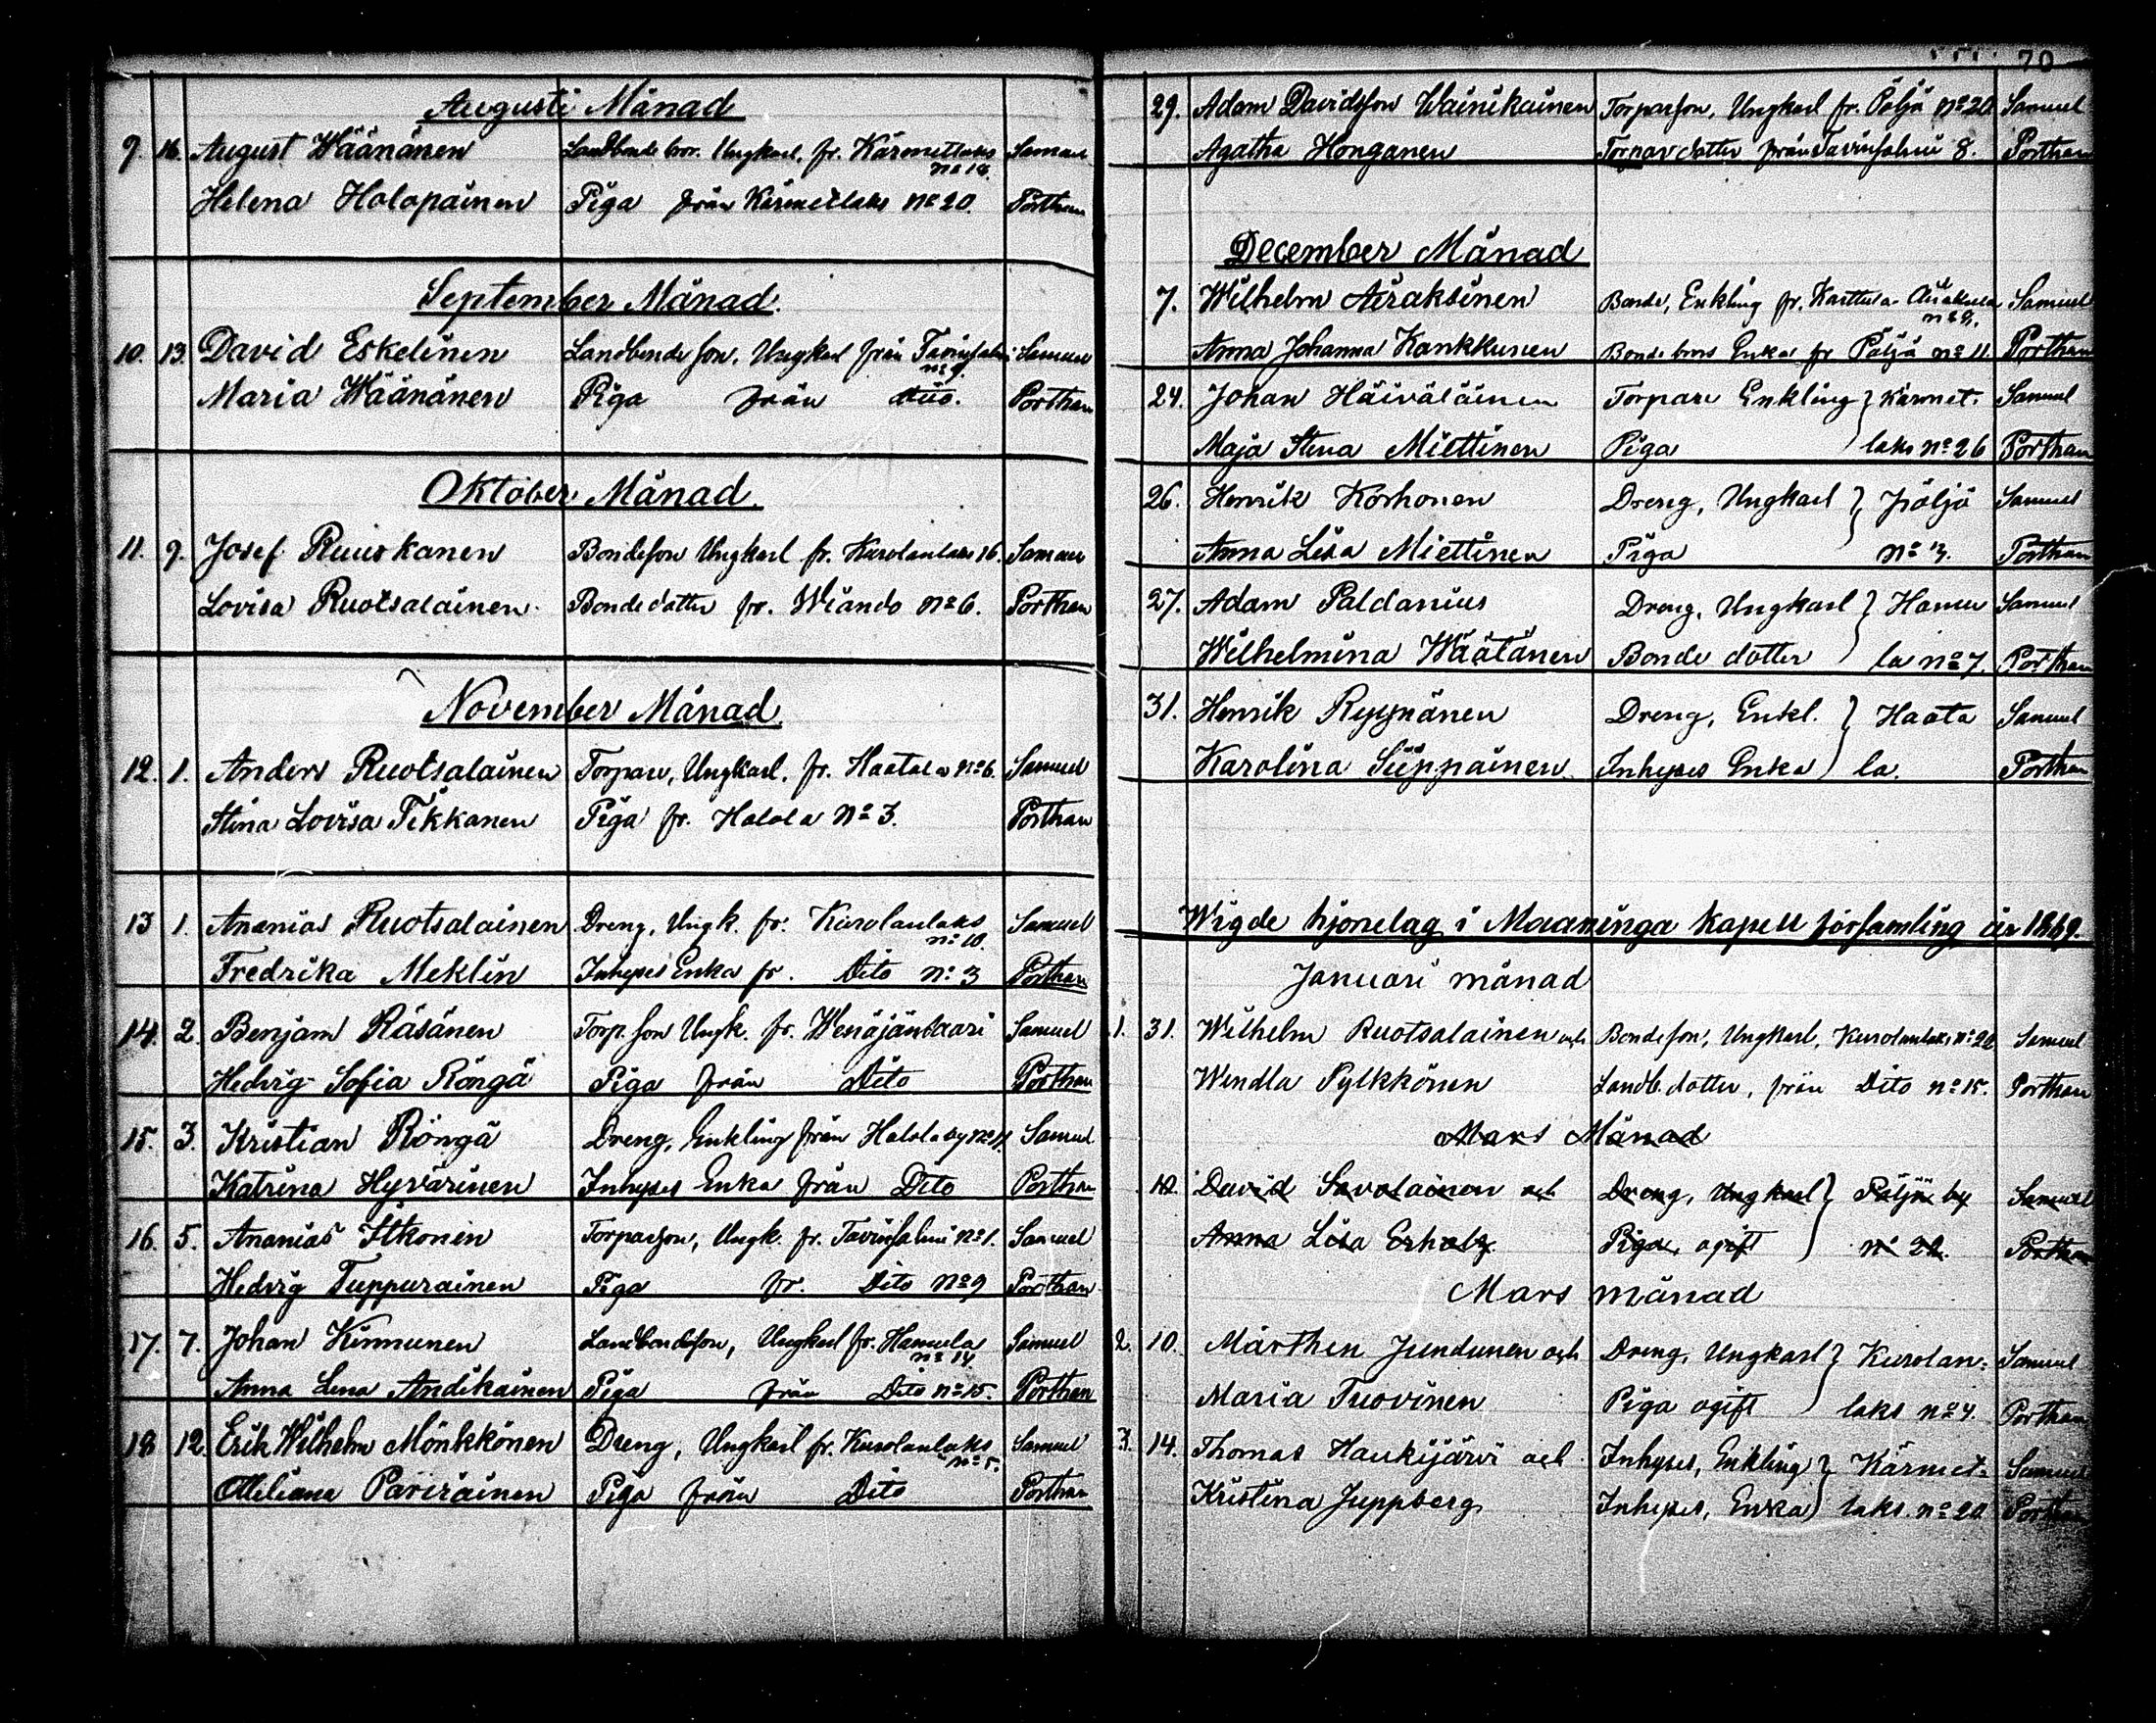 Augusti Månad
9. 16. August Wäänänen Landbonde bror. Ungkarl. fr. Kärmetlaks Samuel
no 14.
Helena Holopainen Piga från Kärmetlaks No 20. Porthan
September Månad.
10. 13. David Eskelinen Landbonde son. Ungkarl från Tavinsalmi Samuel
no 9.
Maria Wäänänen Piga från dito. Porthan
Oktober Månad.
11. 9. Josef Ruuskanen Bondeson Ungkarl fr. Kurolanlaks 16. Samuel
Lovisa Ruotsalainen. Bonde dotter fr. Wiando No 6. Porthan
November Månad.
12. 1. Anders Ruotsalainen Torpare, Ungkarl. fr. Haatala No 6. Samuel
Stina Lovisa Tikkanen Piga fr. Halola No 3. Porthan
13 1. Ananias Ruotsalainen Dreng, Ungk. fr. Kurolanlaks Samuel
no 10.
Fredrika Meklin Inhyses Enka fr. Dito No 3 Porthan
14. 2. Benjam Räsänen Torp. son Ungk. fr. Wenäjänsaari Samuel
Hedvig Sofia Röngä Piga från Dito Porthan
15. 3. Kristian Röngä Dreng, Enkling från Halola by No 11. Samuel
Katrina Hyvärinen Inhyses Enka från Dito Porthan
16. 5. Ananias Itkonen Torparson, Ungk. fr. Tavinsalmi No 1. Samuel
Hedvig Tuppurainen Piga fr. Dito No 9 Porthan
17. 7. Johan Kinnunen Landbondeson, Ungkarl fr. Hamula Samuel
no 14.
Anna Lena Andikainen Piga från Dito No 15. Porthan
18 12. Erik Wilhelm Mönkkönen Dreng, Ungkarl fr. Kurolanlaks Samuel
no 5.
Ottiliana Parviainen Piga från Dito Porthan
70
29. Adam Davidsson Wainikainen Torparson, Ungkarl fr. Pöljä No 20. Samuel
Agatha Honganen Torpardotter från Tavinsalmi 8. Porthan
December Månad
7. Wilhelm Airaksinen Bonde, Enkling fr. Karttula Samuel
no 9.
Anna Johanna Kankkunen Bonde brors Enka fr Pöljä No 11. Porthan
24. Johan Häiväläinen Torpare Enkling } Kärmet- Samuel
Maja Stina Miettinen Piga laks No 26 Porthan
26. Henrik Korhonen Dreng, Ungkarl } Pöljä Samuel
Anna Lisa Miettinen Piga No 3. Porthan
27. Adam Paldanius Dreng, Ungkarl } Hamu Samuel
Wilhelmina Wäätänen Bonde dotter la No 7. Porthan
31. Henrik Ryynänen Dreng, Enkl. } Haata Samuel
Karolina Suppainen Inhyses Enka la. Porthan
Wigde hjonelag i Maaninga kapell församling år 1869.
Januari månad
1. 31. Wilhelm Ruotsalainen och Bondeson, Ungkarl, Kurolanlaks No 22 Samuel
Wendla Pylkkönen Landb. dotter, från Dito No 15. Porthan
Mars Månad
10. David Savolainen och Dreng, Ungkarl } Pöljä by Samuel
Anna Lisa Erholz Piga, ogift No 22. Porthan
Mars månad
2. 10. Mårthen Jundunen och Dreng, Ungkarl } Kurolan- Samuel
Maria Tuovinen Piga ogift laks No 4. Porthan
3. 14. Thomas Haukijärvi och Inhyses, Enkling } Kärmet- Samuel
Kristina Juppberg Inhyses, Enka laks. No 20 Porthan